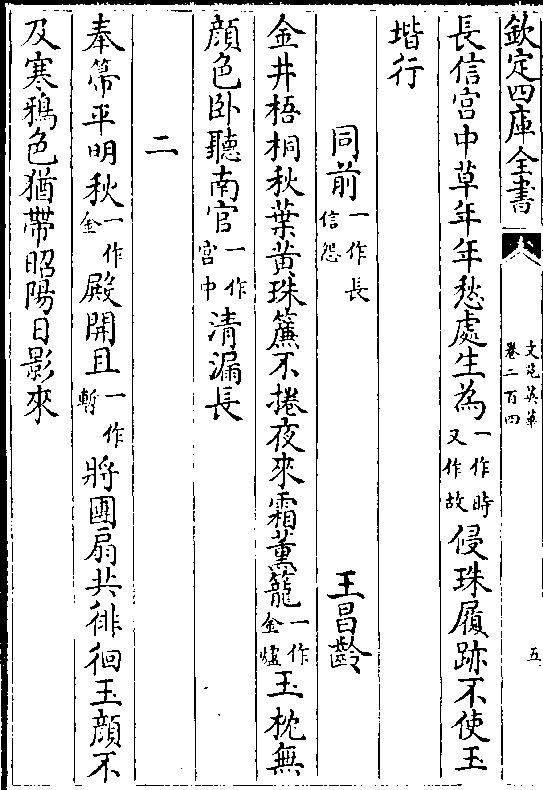 欽定四庫全書
文苑英華
卷二百四
五
長信宫中草年年愁處生為一作時又作故侵珠履跡不使玉
堦行
同前一作長信怨 王昌齡
金井梧桐秋葉黄珠簾不捲夜來霜薰籠一作金爐玉枕無
顔色卧聽南官一作宫中清漏長
二
奉箒平明秋一作金殿開且一作暫將團扇共徘徊玉顔不
及寒鴉色猶帶昭陽日影來